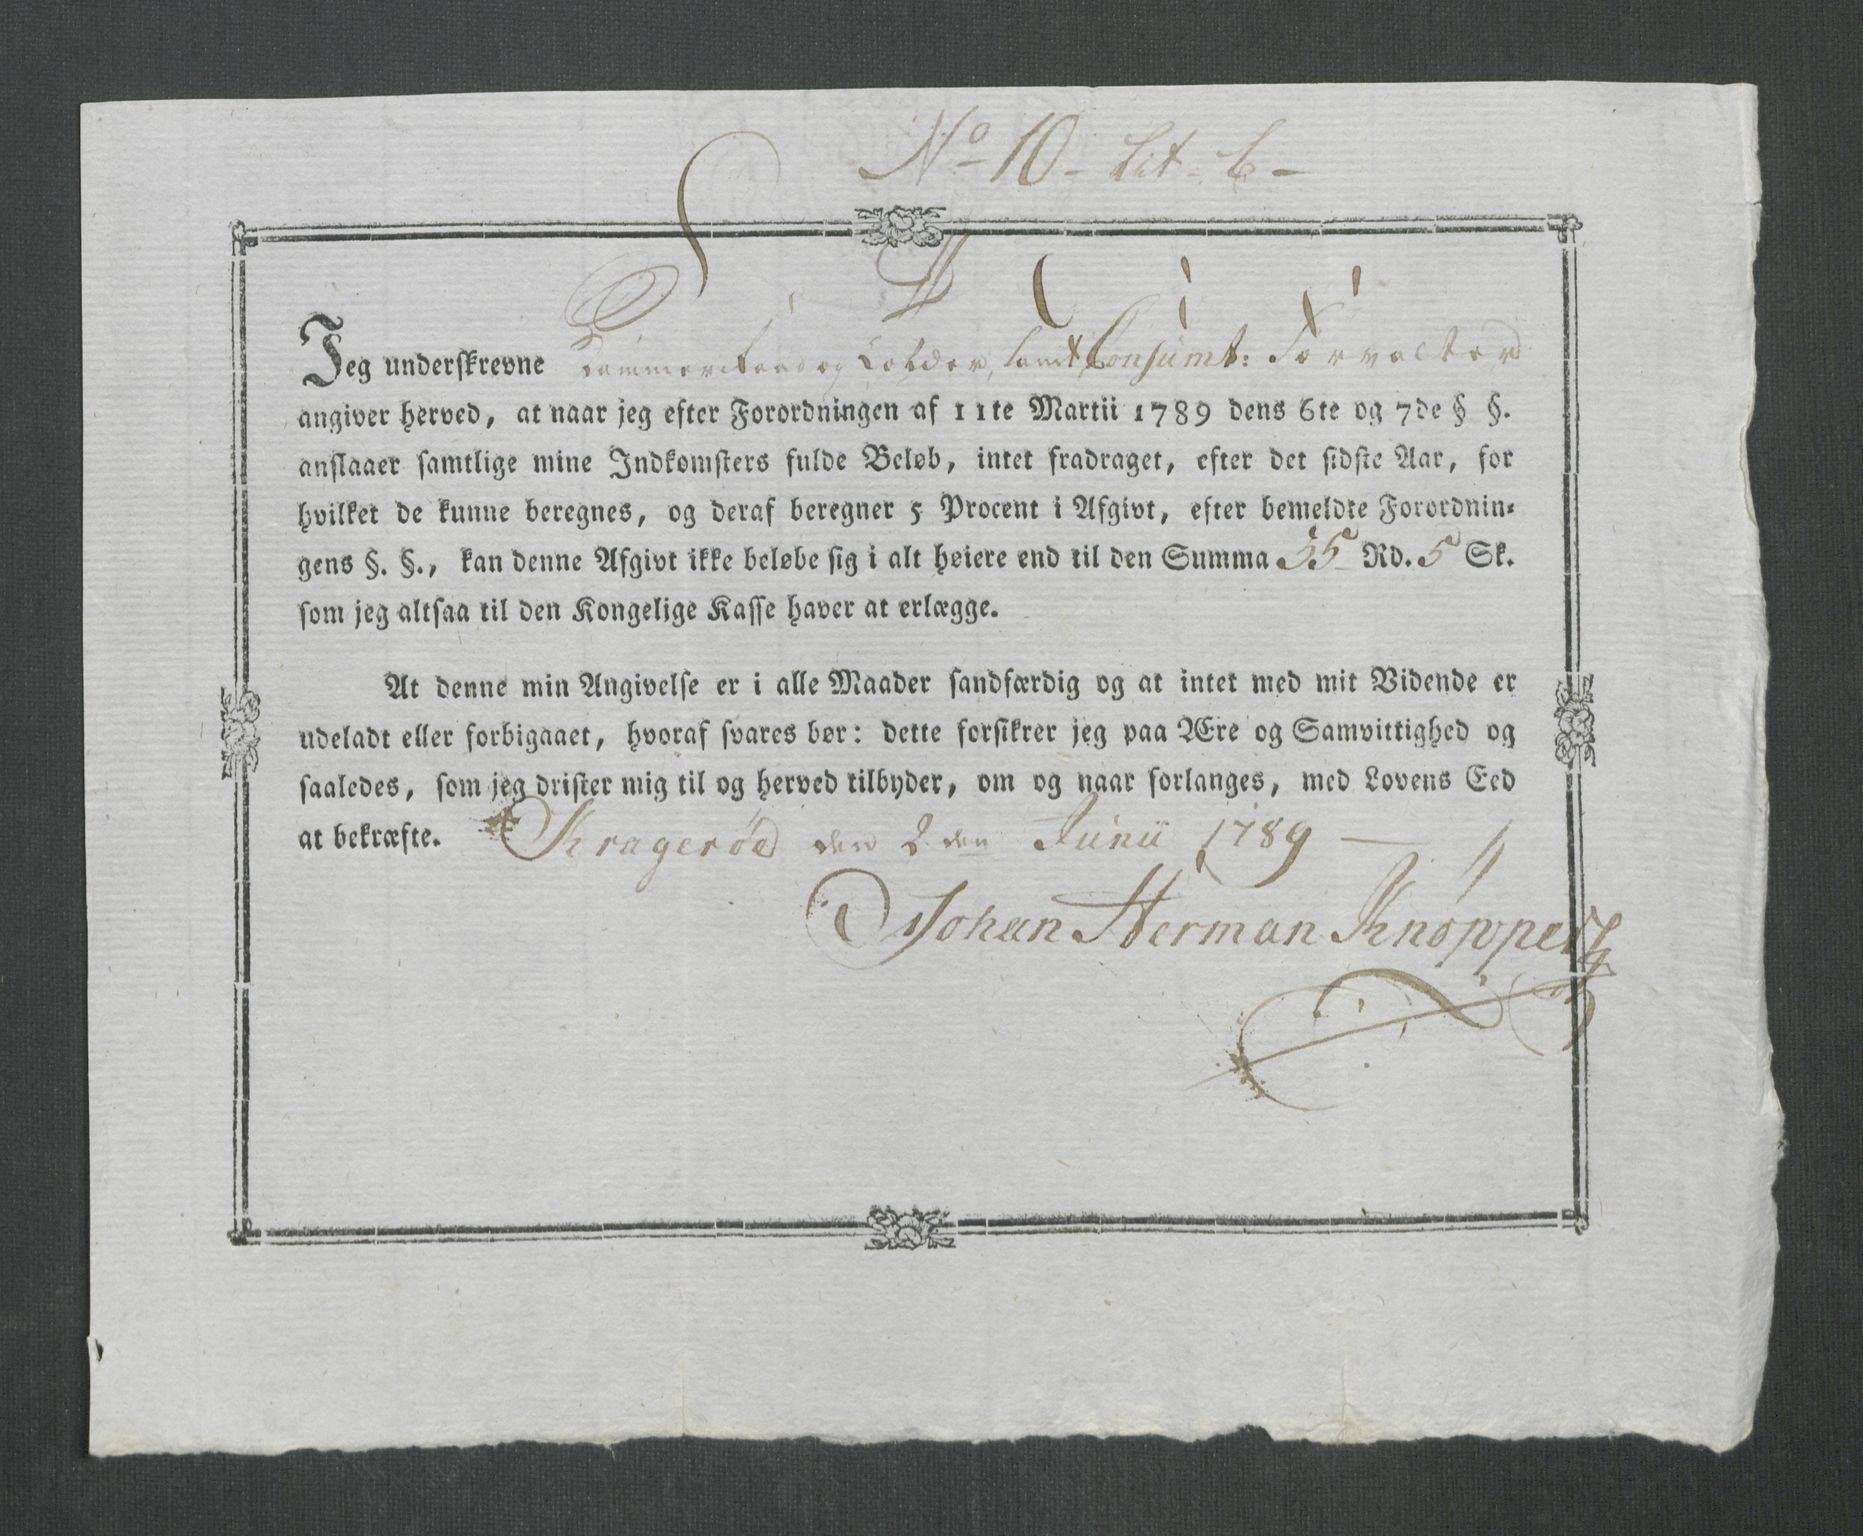 No 10 - Lit - C -
Jeg underskrevne Kammerraad og Tolder, samt Consumt: Forvalter
angiver herved, at naar jeg efter Forordningen af 11te Martii 1789 dens 6te og 7de § §.
anslaaer samtlige mine Indkomsters fulde Beløb, intet fradraget, efter det sidste Aar, for
hvilket de kunne beregnes, og deraf beregner 5 Procent i Afgivt, efter bemeldte Forordnin-
gens §. §., kan denne Afgivt ikke beløbe sig i alt høiere end til den Summa 35 Rd. 5 Sk.
som jeg altsaa til den Kongelige Kasse haver at erlægge.
At denne min Angivelse er i alle Maader sandfærdig og at intet med mit Vidende er
udeladt eller forbigaaet, hvoraf svares bør: dette forsikrer jeg paa Ære og Samvittighed og
saaledes, som jeg drister mig til og herved tilbyder, om og naar forlanges, med Lovens Eed
at bekræfte. Kragerøe den 2den Junii 1789
Johan Herman Knøpper